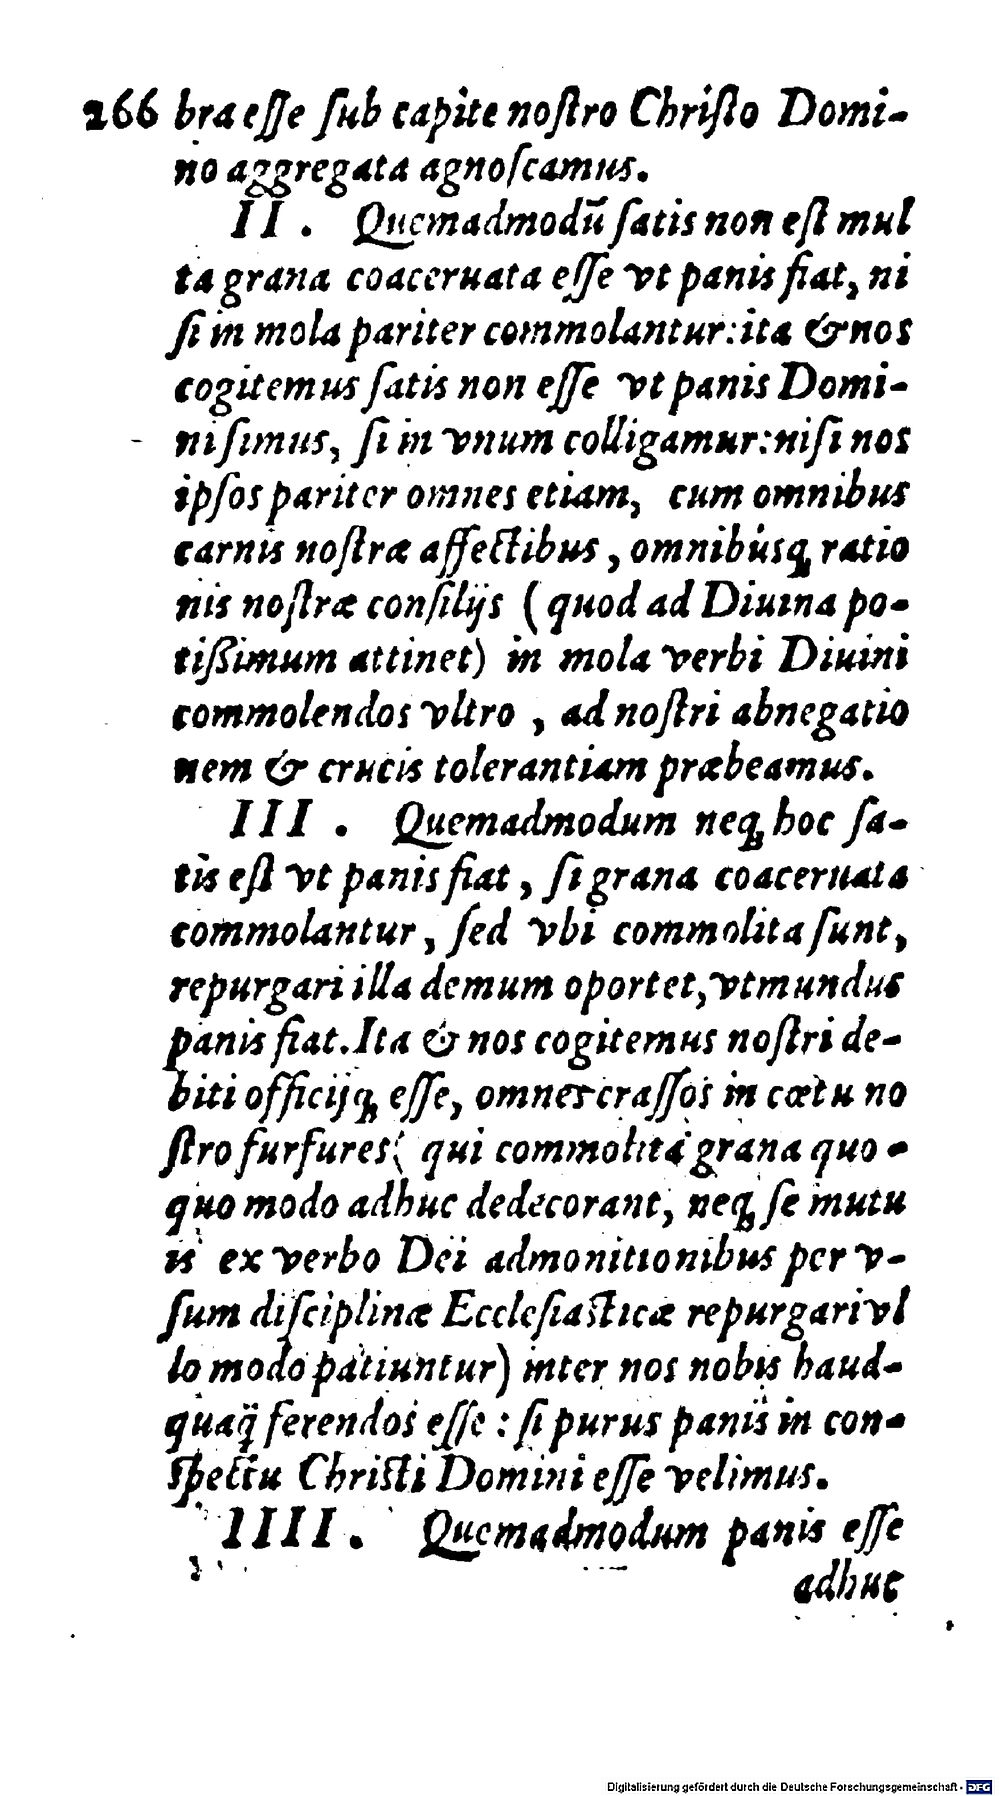 266 bra eſſe ſub capite noſtro Chriſto Domi-
no aggregata agnoſcamus.
II. Quemadmodũ ſatis non eſt mul
ta grana coaceruata eſſe vt panis fiat, ni
ſi in mola pariter commolantur: ita & nos
cogitemus ſatis non eſſe vt panis Domi-
ni ſimus, ſi in vnum colligamur: niſi nos
ipſos pariter omnes etiam, cum omnibus
carnis noſtræ affectibus, omnibúsq; ratio
nis noſtræ conſilijs (quod ad Diuina po-
tißimum attinet) in mola verbi Diuini
commolendos vltro, ad noſtri abnegatio
nem & crucis tolerantiam præbeamus.
III. Quemadmodum neq; hoc ſa-
tis eſt vt panis fiat, ſi grana coaceruata
commolantur, ſed vbi commolita ſunt,
repurgari illa demum oportet, vt mundus
panis fiat. Ita & nos cogitemus noſtri de-
biti officijq; eſſe, omnes craſſos in cœtu no
ſtro furfures ( qui commolita grana quo-
quo modo adhuc dedecorant, neq; ſe mutu
is ex verbo Dei admonitionibus per v-
ſum diſciplinæ Eccleſiaſticæ repurgari vl
lo modo patiuntur) inter nos nobis haud-
quaq̃ ferendos eſſe : ſi purus panis in con-
ſpectu Chriſti Domini eſſe velimus.
IIII. Quemadmodum panis eſſe
adhuc
Digitalisierung gefördert durch die Deutsche Forschungsgemeinschaft - DFG